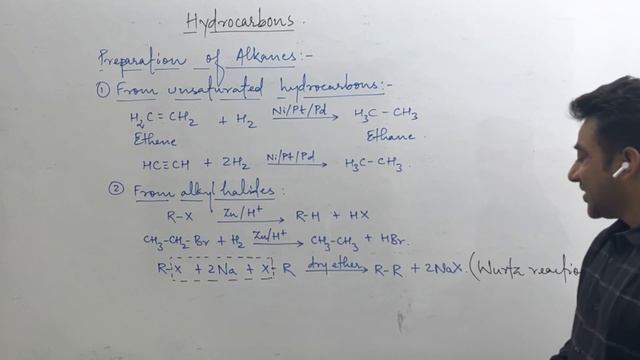 Hydrocarbons.
Preparation of Alkanes:-
① From unsaturated hydrocarbons:-
H₂C=CH₂ + H₂ Ni/Pt/Pd → H₃C-CH₃
Ethene Ethane.
HC≡CH + 2H₂ Ni/Pt/Pd → H₃C-CH₃.
② From alkyl halides:
R-X Zn/H⁺ → R-H + HX
CH₃-CH₂-Br + H₂ Zn/H⁺ → CH₃-CH₃ + HBr.
R-X + 2Na + X-R dry ether → R-R + 2NaX. (Wurtz reactio